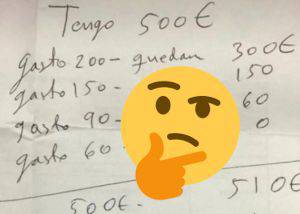 Tengo 500€
gasto 200 - quedan 300€
gasto 150 - 150
gasto 90 - 60
gasto 60 0
500€. 510€